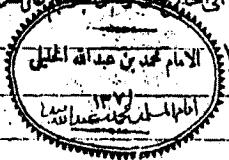 الامام محمد بن عبدالله الخليلي
١٣٧١
امام المسلمين محمد بن عبدالله